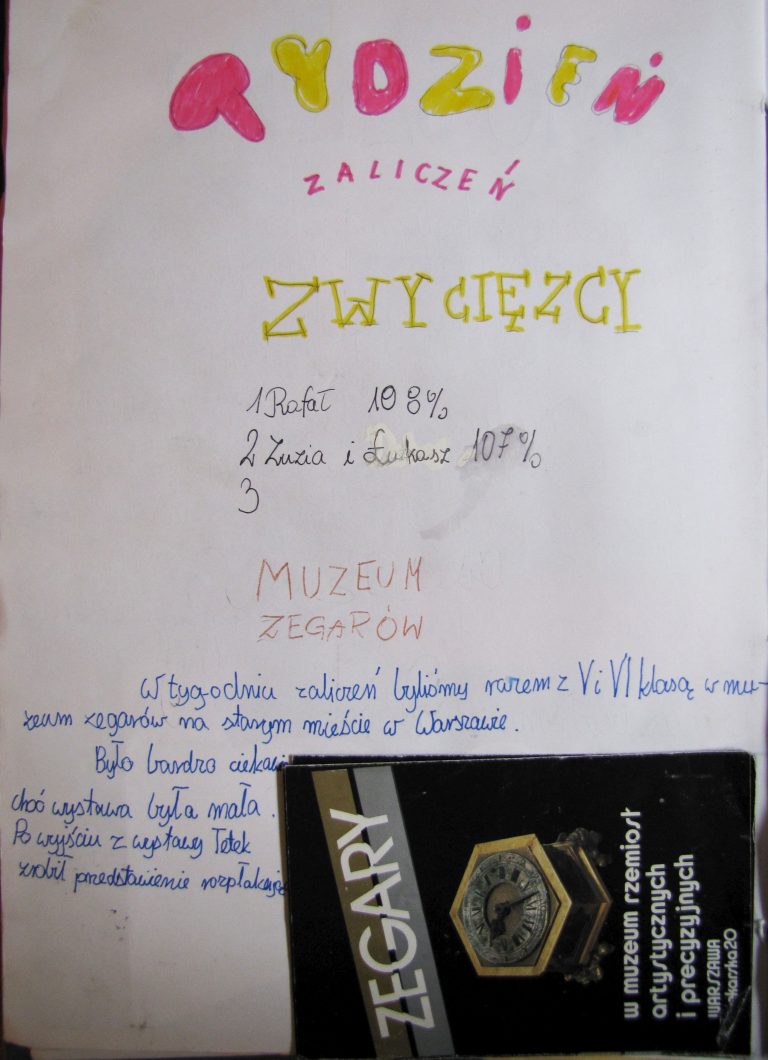 TYDZIEŃ
ZALICZEŃ
ZWYCIĘZCY
1 Rafał 108%
2 Zuzia i Łukasz 107%
3
MUZEUM
ZEGARÓW
W tygodniu zaliczeń byliśmy razem z V i VI klasą w mu-
zeum zegarów na starym mieście w Warszawie.
Było bardzo ciekawie
choć wystawa była mała.
Po wyjściu z wystawy Tetek
zrobił przedstawienie rozpłakując
ZEGARY
w muzeum rzemiosł
artystycznych
i precyzyjnych
WARSZAWA
Piekarska 20